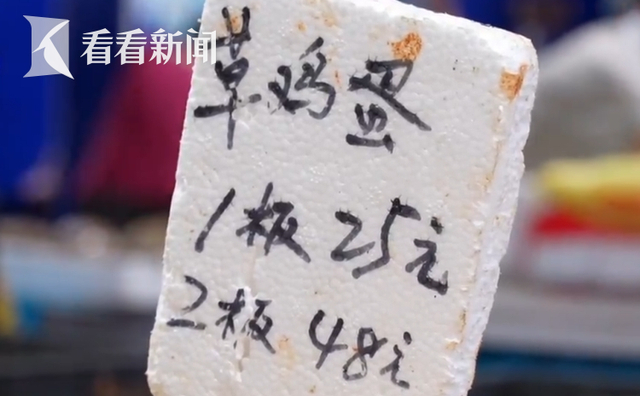 看看新闻
草鸡蛋
1板 25元
2板 48元